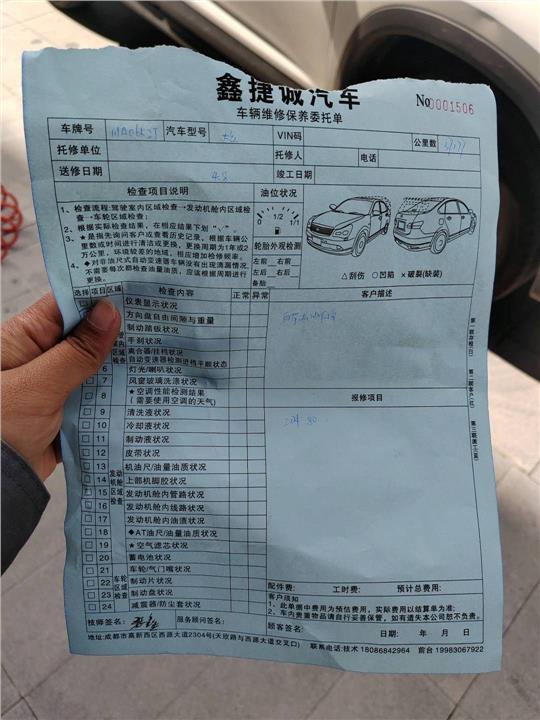 鑫捷诚汽车
车辆维修保养委托单
No 0001506
车牌号 汽车型号 VIN码 公里数
托修单位 托修人 电话
送修日期 竣工日期
检查项目说明
1、检查流程:驾驶室内区域检查→发动机舱内区域检查→车轮区域检查;
2、根据实际检查结果,在相应结果下划"√"。
3、★是指先询问客户或查看历史记录,根据车辆公里数或时间进行清洁或更换,更换周期为1年或2万公里,环境较差的地域,相应增加检修频率。
4、◆对非油尺式自动变速器车辆没有出现泄漏情况,不需要每次都检查油量油质,应该根据周期进行更换。
油位状况
0 1/2 1/1
轮胎外观检测
左前 前右
左后 后右
备胎
△刮伤 ○凹陷 ×破裂(缺装)
选择 项目 区域 检查内容 正常 异常
仪表显示状况
方向盘自由间隙与重量
制动踏板状况
手刹状况
离合器/挂档状况
自动变速器检测进档平顺状态
6 灯光/喇叭状况
7 风窗玻璃洗涤状况
8 ★空调性能检测结果
(需要使用空调的天气)
9 清洗液状况
10 冷却液状况
11 制动液状况
12 皮带状况
13 机油尺/油量油质状况
14 上部机脚胶状况
15 发动机舱内管路状况
16 发动机舱内线路状况
17 发动机舱内油渣状况
18 ◆AT油尺/油量油质状况
19 ★空气滤芯状况
20 蓄电池状况
21 车轮/气门嘴状况
22 制动片状况
23 制动盘状况
24 减震器/防尘套状况
发动机舱区域检查
车轮区域检查
客户描述
报修项目
配件费: 工时费: 预计总费用:
客户须知
1、此单据中费用为预估费用,实际费用以结算单为准;
2、车内贵重物品请自行妥善保管,如有遗失本公司恕不负责。
技师签名: 服务顾问签名: 顾客签名: 日期: 年 月 日
地址:成都市高新西区西源大道2304号(天欣路与西源大道交叉口) 联系电话:技术 18086842964 前台 19983067922